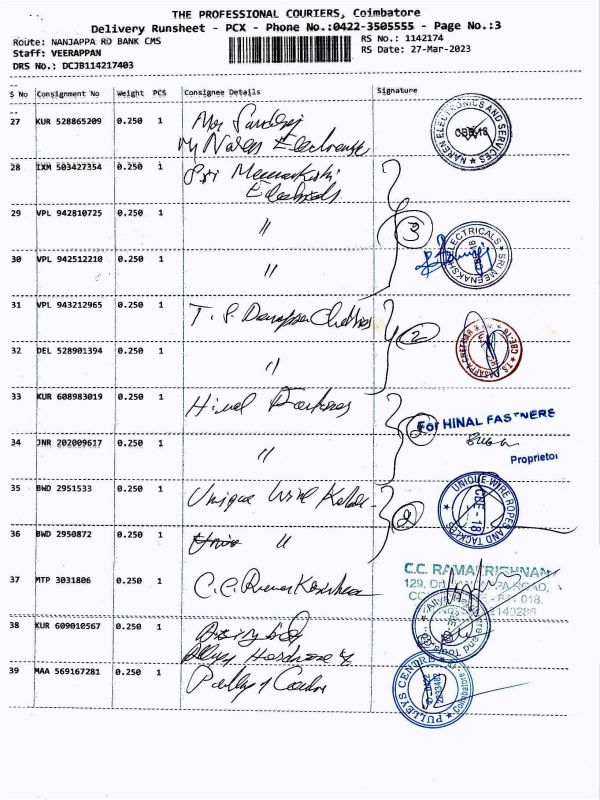 THE PROFESSIONAL COURIERS, Coimbatore
Delivery Runsheet - PCX - Phone No.:0422-3505555 - Page No.:3
Route: NANJAPPA RD BANK CMS
RS No.: 1142174
Staff: VEERAPPAN
RS Date: 27-Mar-2023
DRS No.: DCJB114217403
S No Consignment No Weight PCS Consignee Details Signature
27 KUR 528865209 0.250 1
NAREN ELECTRONICS AND SERVICES
CBE-18
28 IXM 503427354 0.250 1 Sri Meenakshi
Electricals
29 VPL 942810725 0.250 1 〃
3
30 VPL 942512210 0.250 1 〃
SRI MEENAKSHI ELECTRICALS
31 VPL 943212965 0.250 1 T. S.
2
32 DEL 528901394 0.250 1 〃
33 KUR 608983019 0.250 1 Hinal
For HINAL FASTNERS
34 JNR 202009617 0.250 1 〃
Proprietor
35 BWD 2951533 0.250 1 Unique Wire
UNIQUE WIRE ROPES AND TACKLES
CBE-18
2
36 BWD 2950872 0.250 1 〃
37 MTP 3031806 0.250 1 C.C. Ramakrishna
C.C. RAMAKRISHNAN
38 KUR 609010567 0.250 1
39 MAA 569167281 0.250 1
PULLEYS CENTRE